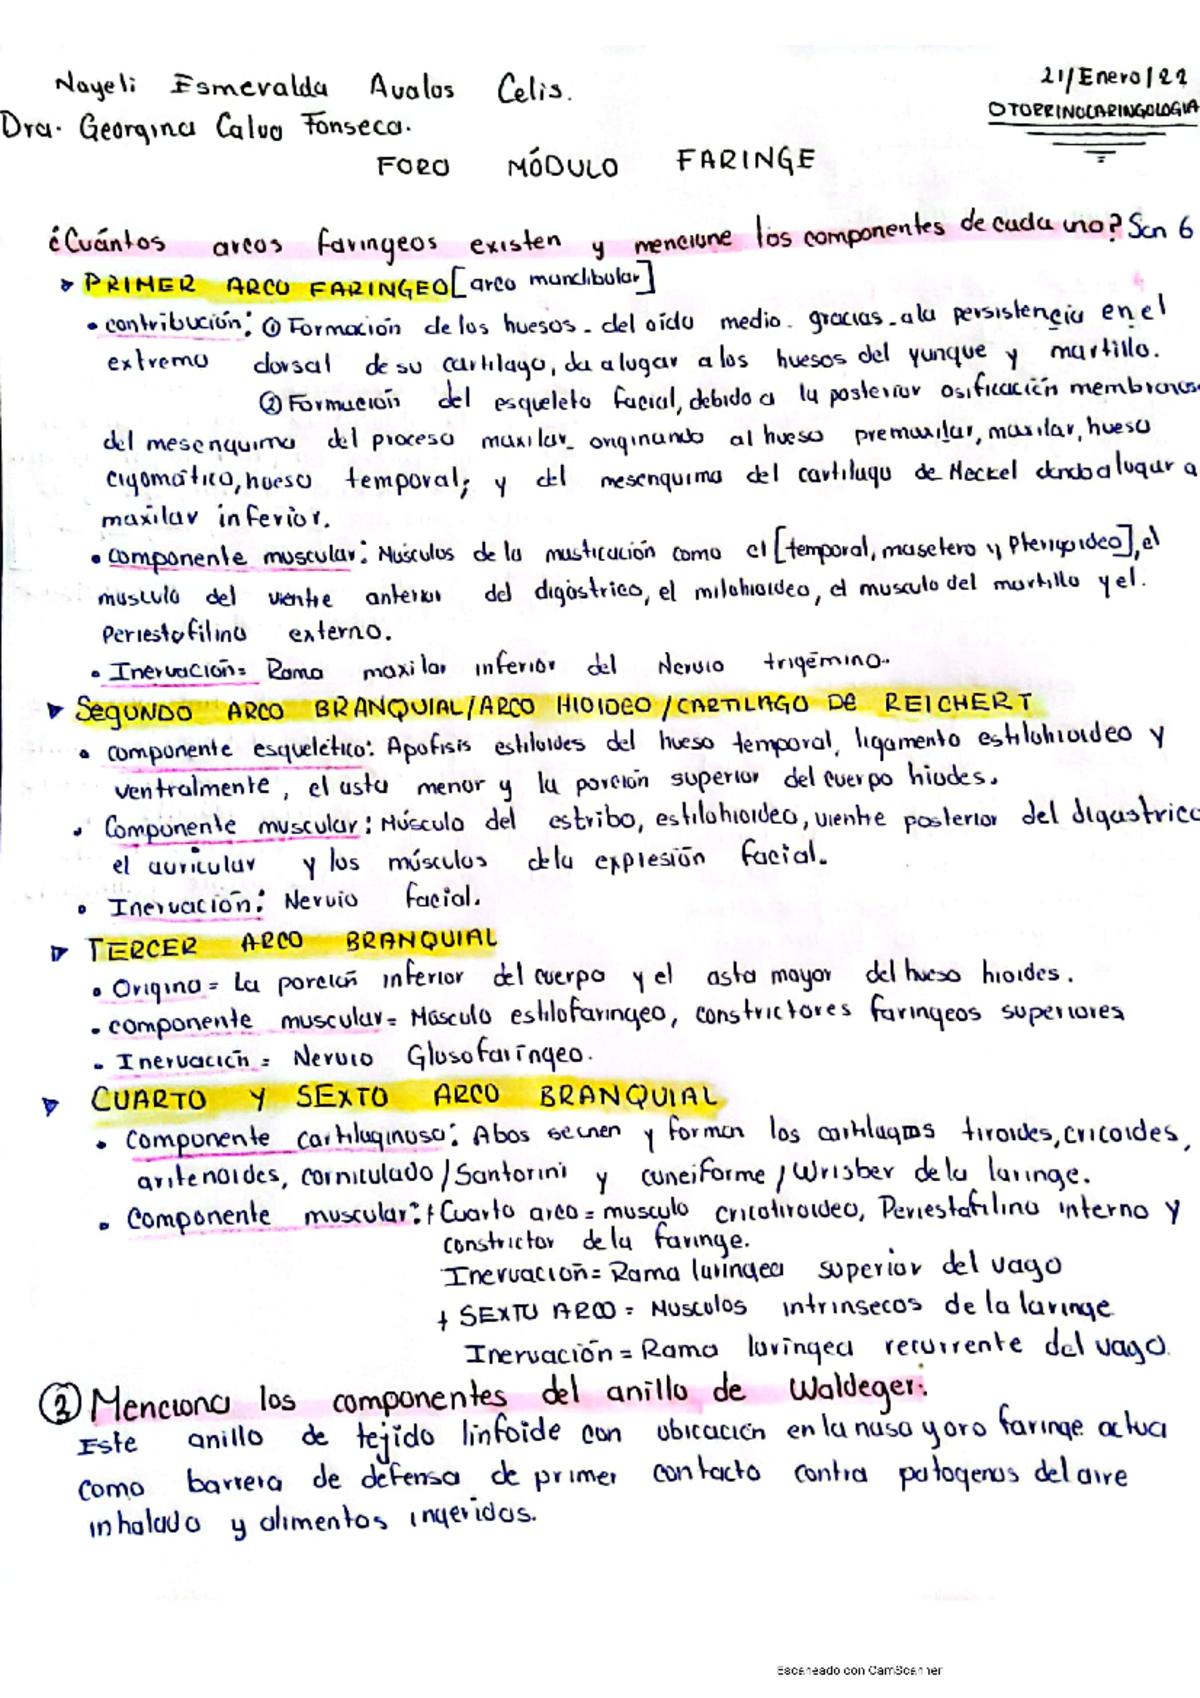 Nayeli Esmeralda Avalos Celis.
21/Enero/22
Dra. Georgina Calvo Fonseca.
OTORRINOLARINGOLOGIA
FORO MÓDULO FARINGE
¿Cuántos arcos faríngeos existen y mencione los componentes de cada uno? Son 6
PRIMER ARCO FARINGEO [arco mandibular]
• contribución: ① Formación de los huesos del oído medio gracias a la persistencia en el
extremo dorsal de su cartílago, da a lugar a los huesos del yunque y martillo.
② Formación del esqueleto facial, debido a la posterior osificación membranosa
del mesenquima del proceso maxilar originando al hueso premaxilar, maxilar, hueso
cigomático, hueso temporal; y del mesenquima del cartilago de Meckel dando a lugar a
maxilar inferior.
• componente muscular: Músculos de la masticación como el [temporal, masetero y Pterigoideo], el
musculo del vientre anterior del digástrico, el milohioideo, el musculo del martillo y el
Periestafilino externo.
• Inervación= Rama maxilar inferior del Nervio trigémino.
SEGUNDO ARCO BRANQUIAL/ARCO HIOIDEO/CARTILAGO DE REICHERT
• componente esquelético: Apofisis estiloides del hueso temporal, ligamento estilohioideo y
ventralmente, el asta menor y la porción superior del cuerpo hiodes.
• Componente muscular: Músculo del estribo, estilohioideo, vientre posterior del digastrico
el auricular y los músculos de la expresión facial.
• Inervación: Nervio facial.
TERCER ARCO BRANQUIAL
• Origina= La porción inferior del cuerpo y el asta mayor del hueso hioides.
• componente muscular= Músculo estilofaringeo, constrictores faríngeos superiores
• Inervación= Nervio Glosofaríngeo.
CUARTO Y SEXTO ARCO BRANQUIAL
• Componente cartilaginoso: Abos se unen y forman los cartílagos tiroides, cricoides,
aritenoides, corniculado/Santorini y cuneiforme/Wrisber de la laringe.
• Componente muscular: + Cuarto arco= musculo cricotiroideo, Periestafilino interno y
constrictor de la faringe.
Inervación= Rama laringea superior del vago
+ SEXTO ARCO= Musculos intrinsecos de la laringe
Inervación= Rama laríngea recurrente del vago.
② Menciona los componentes del anillo de Waldeger:
Este anillo de tejido linfoide con ubicación en la naso y oro faringe actua
como barrera de defensa de primer contacto contra patogenos del aire
inhalado y alimentos ingeridos.
Escaneado con CamScanner